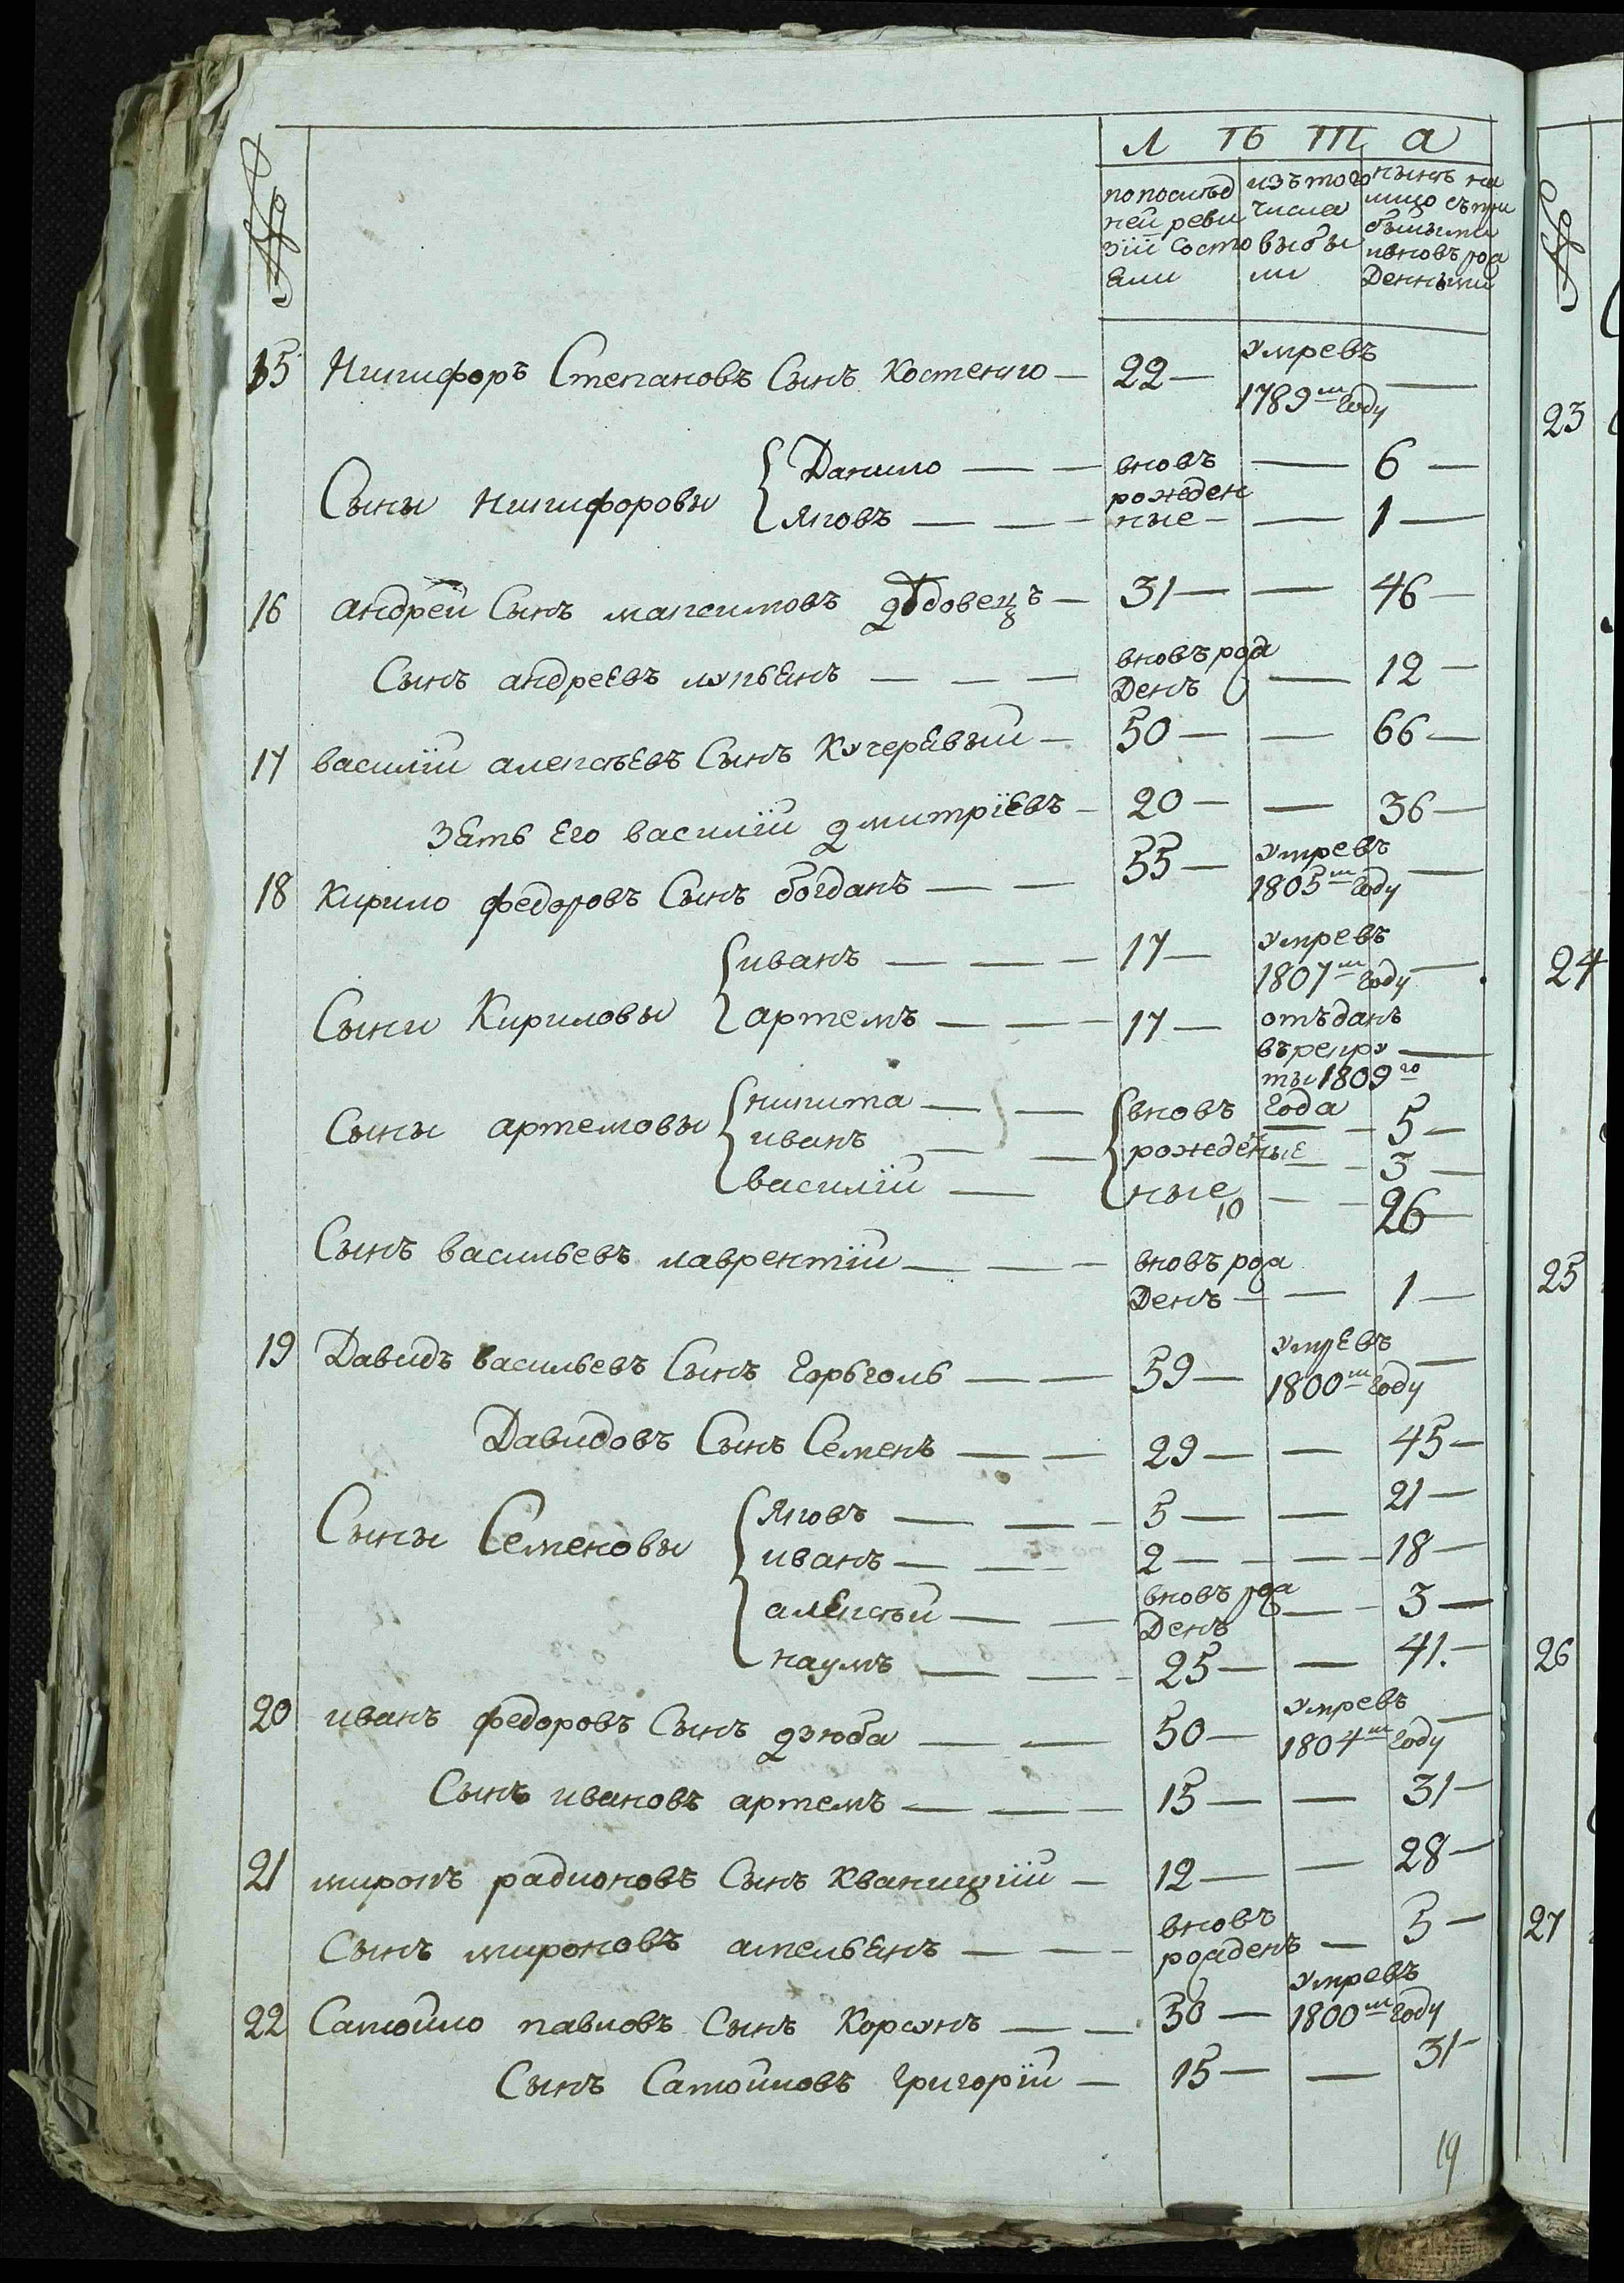 №
Л Ѣ Т А
по послѣд
ней реви
зіи состо
Яли
изъ того
числа
выбы
ли
нынѣ на
лицо съ при
былыми
и вновь рож
Денными
15 Никифоръ Степановъ Сынъ Костенко — 22 — умревъ 1789м году —
Сыны Никифоровы
Данило — — вновь — 6 —
рожден
Яковъ — — — ные — — 1 —
16 андрей Сынъ максимовъ дѣдовецъ — 31 — — 46 —
Сынъ андреевъ лукьянъ — — — вновь рож Денъ — 12 —
17 василій алексѣевъ Сынъ Кучерявый — 50 — — 66 —
Зять его василій дмитріевъ — 20 — — 36 —
18 Кирило федоровъ Сынъ богданъ — — 55 — умревъ 1805м году —
Сыни Кириловы
иванъ — — — 17 — умревъ 1807м году —
артемъ — — — 17 — отъданъ въ рекру ты 1809го года —
Сыны артемовы
никита — — вновь — — 5 —
иванъ — — рожденые — — 3 —
василій — ные 10 — — 26
Сынъ васильевъ лаврентій — — — вновь рож Денъ — — 1 —
19 Давидъ васильевъ Сынъ Горьголь — — 59 — умревъ 1800м году —
Давидовъ Сынъ Семенъ — — 29 — — 45 —
Сыны Семеновы
Яковъ — — — 5 — — 21 —
иванъ — — — 2 — — — 18 —
алексѣй — — вновь рож Денъ — — 3 —
наумъ — — — 25 — — 41. —
20 иванъ федоровъ Сынъ дзюба — — 50 — умревъ 1804м году —
Сынъ ивановъ артемъ — — — 15 — — 31 —
21 миронъ радионовъ Сынъ Кваницкій — 12 — — 28 —
Сынъ мироновъ амельянъ — — — вновь рожденъ — 5 —
22 Самойло павловъ Сынъ Корсунъ — — 30 — умревъ 1800м году
Сынъ Самойловъ Григорій — 15 — — 31 —
19
№
23
24
25
26
27